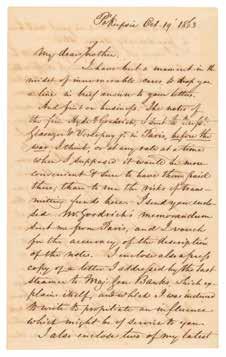 Po'kepsie Oct. 19th 1863
My dear brother,
I have but a moment in the
midst of innumerable cares to drop you
a line in brief answer to your letter.
And first on business. The notes
of the firm & Goodrich, I sent to Messrs
in Paris, before the
war, I think, or at any rate at a time
when I supposed it would be more
convenient & sure to have them paid
there, than to run the risks of trans-
mitting funds here. I send you enclo-
sed Mr Goodrich's memorandum
sent me from Paris, and I vouch
for the accuracy of the description
of the notes. I inclose also a press
copy of a letter I addressed by the last
steamer to Maj. Gen. Banks which ex-
plains itself, and which I was induced
to write to propitiate an influence
which might be of service to you.
I also enclose two of my latest